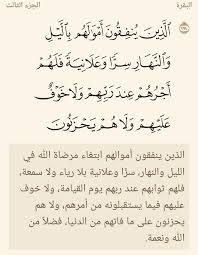 البقرة الجزء الثالث
ٱلَّذِينَ يُنفِقُونَ أَمْوَٰلَهُم بِٱلَّيْلِ
وَٱلنَّهَارِ سِرًّا وَعَلَانِيَةً فَلَهُمْ
أَجْرُهُمْ عِندَ رَبِّهِمْ وَلَا خَوْفٌ
عَلَيْهِمْ وَلَا هُمْ يَحْزَنُونَ
الذين ينفقون أموالهم ابتغاء مرضاة الله في
الليل والنهار، سرًّا وعلانية بلا رياء ولا سمعة،
فلهم ثوابهم عند ربهم يوم القيامة، ولا خوف
عليهم فيما يستقبلونه من أمرهم، ولا هم
يحزنون على ما فاتهم من الدنيا، فضلًا من
الله ونعمة.